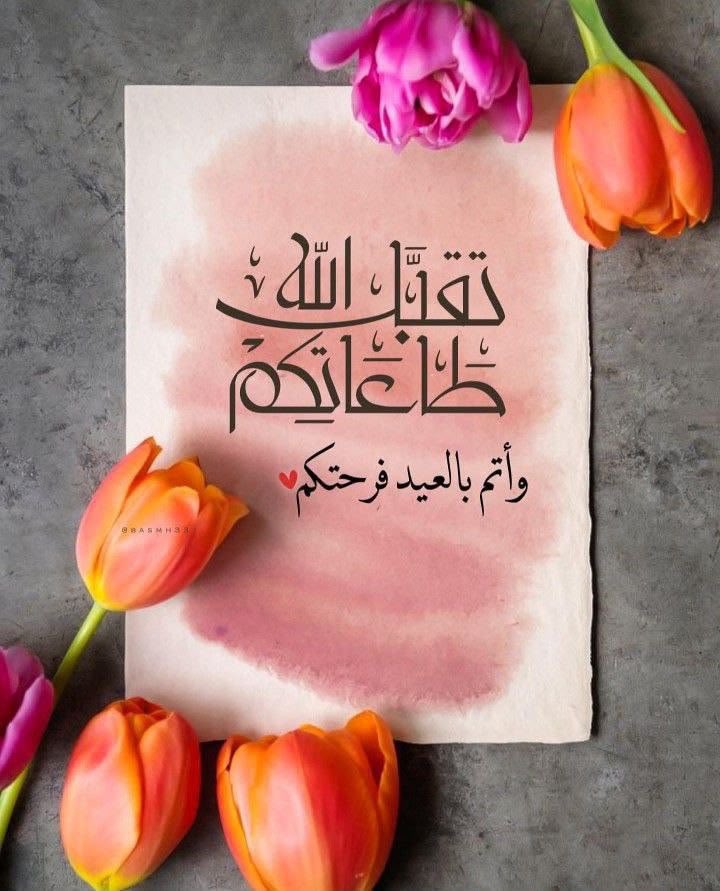 تقبَّل الله
طَاعَاتِكِمْ
وأتم بالعيد فرحتكم
@BASMH33